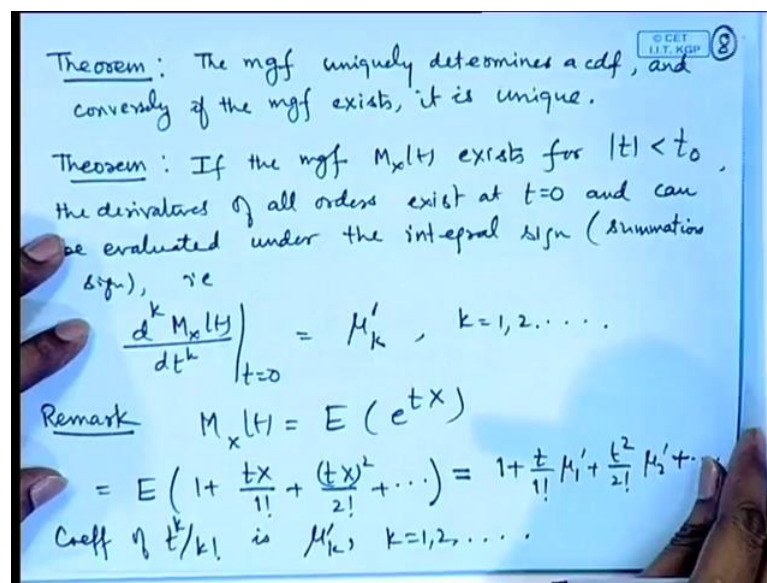 © CET
I.I.T. KGP
8
Theorem : The mgf uniquely determines a cdf, and
conversely if the mgf exists, it is unique.
Theorem : If the mgf Mₓ(t) exists for |t| < t₀,
the derivatives of all orders exist at t=0 and can
be evaluated under the integral sign (summation
sign), ie
d^k Mₓ(t) / dt^k |_{t=0} = μ'_k , k=1,2.....
Remark Mₓ(t) = E(e^{tX})
= E(1 + tX/1! + (tX)²/2! + ⋯) = 1 + t/1! μ₁' + t²/2! μ₂' + ⋯
Coeff of t^k/k! is μ'_k, k=1,2,....